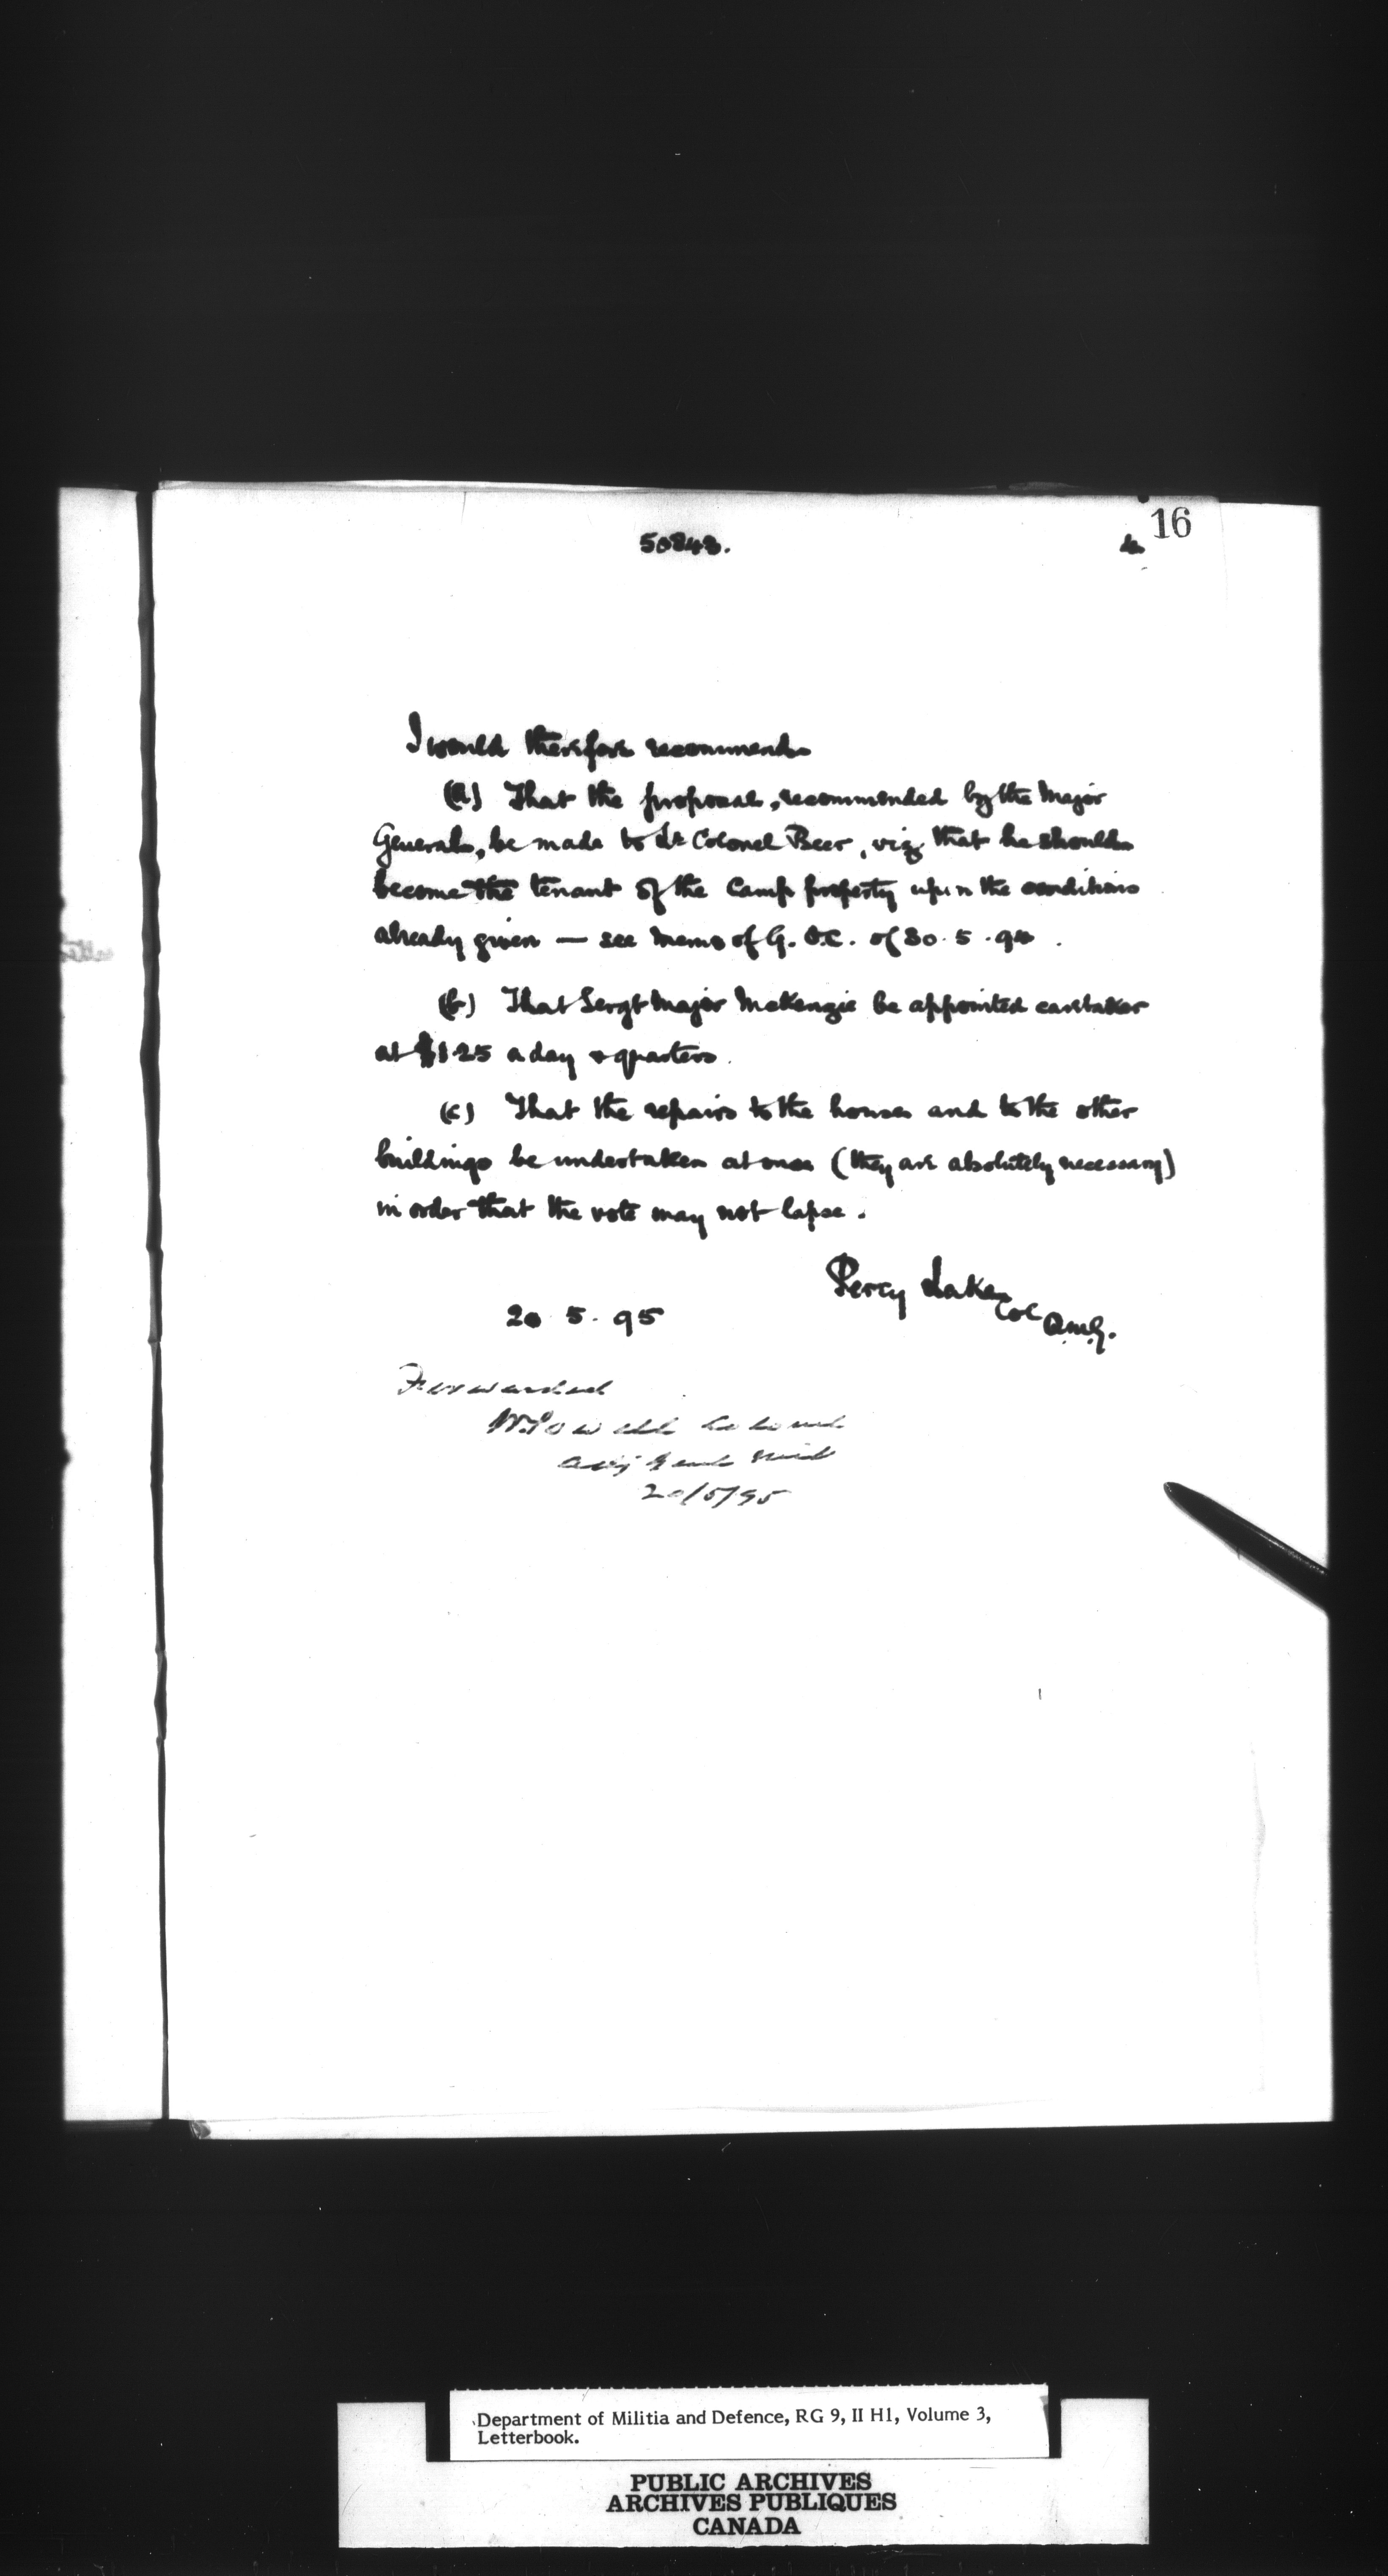 16
50848.
I would therefore recommend
(a) That the proposal, recommended by the Major
General, be made to Lt Colonel Beer, viz that he should
become the tenant of the Camp property upon the conditions
already given — see memo of G.O.C. of 30.5.94.
(b) That Sergt Major McKenzie be appointed caretaker
at $1.25 a day & quarters.
(c) That the repairs to the houses and to the other
buildings be undertaken at once (they are absolutely necessary)
in order that the vote may not lapse.
Percy Lake Col
Q.M.G.
20.5.95
Forwarded
W. Powell Colonel
Adj Genl
20/5/95
Department of Militia and Defence, RG 9, II H1, Volume 3,
Letterbook.
PUBLIC ARCHIVES
ARCHIVES PUBLIQUES
CANADA